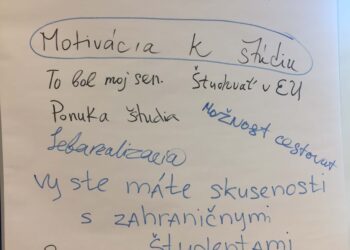 Motivácia k štúdiu
To bol moj sen. Študovať v EU
Ponuka študia
Možnosť cestovať
Sebarealizacia
Vy ste máte skusenosti
s zahraničnými
študentami